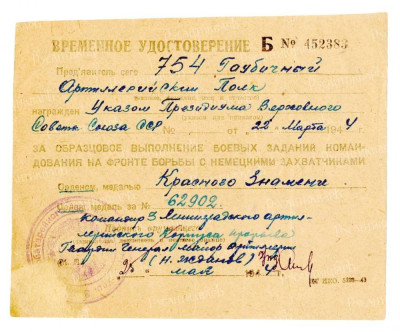 ВРЕМЕННОЕ УДОСТОВЕРЕНИЕ Б № 452383
Пред'явитель сего 754 Гаубичный
Артиллерийский Полк
награжден Указом Президиума Верховного
Совета Союза ССР № от „25" Марта 1944
ЗА ОБРАЗЦОВОЕ ВЫПОЛНЕНИЕ БОЕВЫХ ЗАДАНИЙ КОМАН-
ДОВАНИЯ НА ФРОНТЕ БОРЬБЫ С НЕМЕЦКИМИ ЗАХВАТЧИКАМИ
Орденом, медалью Красного Знамени
Орден, медаль за № 62902
Командир 3 Ленинградского артил-
лерийского Корпуса прорыва
Гвардии Генерал Майор артиллерии
М. П. (Н. Жданов)
„25" май 194